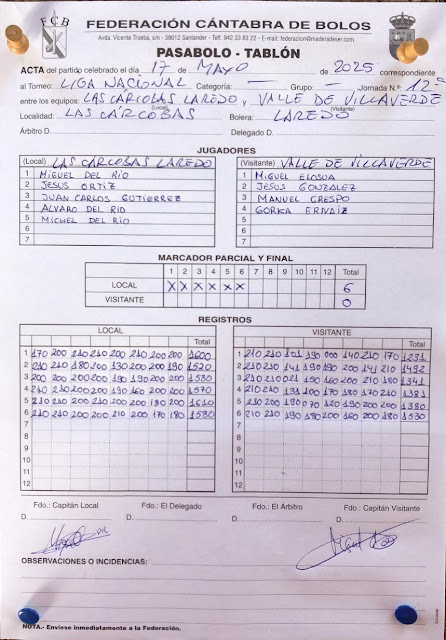 FEDERACIÓN CÁNTABRA DE BOLOS
FCB
Avda. Vicente Trueba, s/n - 39012 Santander - Telf: 942 33 83 22 - E-mail: federacion@maderadeser.com
PASABOLO - TABLÓN
ACTA del partido celebrado el día 17 de MAYO de 2025 correspondiente
al Torneo: LIGA NACIONAL Categoría: — Grupo: — Jornada N.º: 12ª
entre los equipos: LAS CARCOBAS LAREDO y VALLE DE VILLAVERDE
(Local) (Visitante)
Localidad: LAS CÁRCOBAS Bolera: LAREDO
Árbitro D. Delegado D.
JUGADORES
(Local) LAS CARCOBAS LAREDO (Visitante) VALLE DE VILLAVERDE
1 MIGUEL DEL RIO 1 MIGUEL ELOSUA
2 JESUS ORTIZ 2 JESUS GONZALEZ
3 JUAN CARLOS GUTIERREZ 3 MANUEL CRESPO
4 ALVARO DEL RIO 4 GORKA
5 MICHEL DEL RIO 5
6 6
7 7
MARCADOR PARCIAL Y FINAL
1 2 3 4 5 6 7 8 9 10 11 12 Total
LOCAL X X X X X X 6
VISITANTE 0
REGISTROS
LOCAL VISITANTE
Total Total
1 170 200 210 210 200 210 200 200 1600 1 210 210 101 190 000 140 210 170 1231
2 210 210 180 200 130 200 200 190 1520 2 210 210 141 190 190 200 141 210 1492
3 200 200 200 200 190 190 200 200 1580 3 210 210 021 190 160 200 210 1341
4 210 210 200 200 190 160 200 200 1570 4 210 210 131 200 170 180 170 210 1381
5 210 210 200 200 200 200 190 200 1610 5 190 070 120 190 200 200 1380
6 210 210 200 200 210 200 170 180 1580 6 210 210 190 180 200 160 200 180 1530
7 7
8 8
9 9
10 10
11 11
12 12
Fdo.: Capitán Local Fdo.: El Delegado Fdo.: El Árbitro Fdo.: Capitán Visitante
D. D. D. D.
OBSERVACIONES O INCIDENCIAS:
NOTA.- Envíese inmediatamente a la Federación.